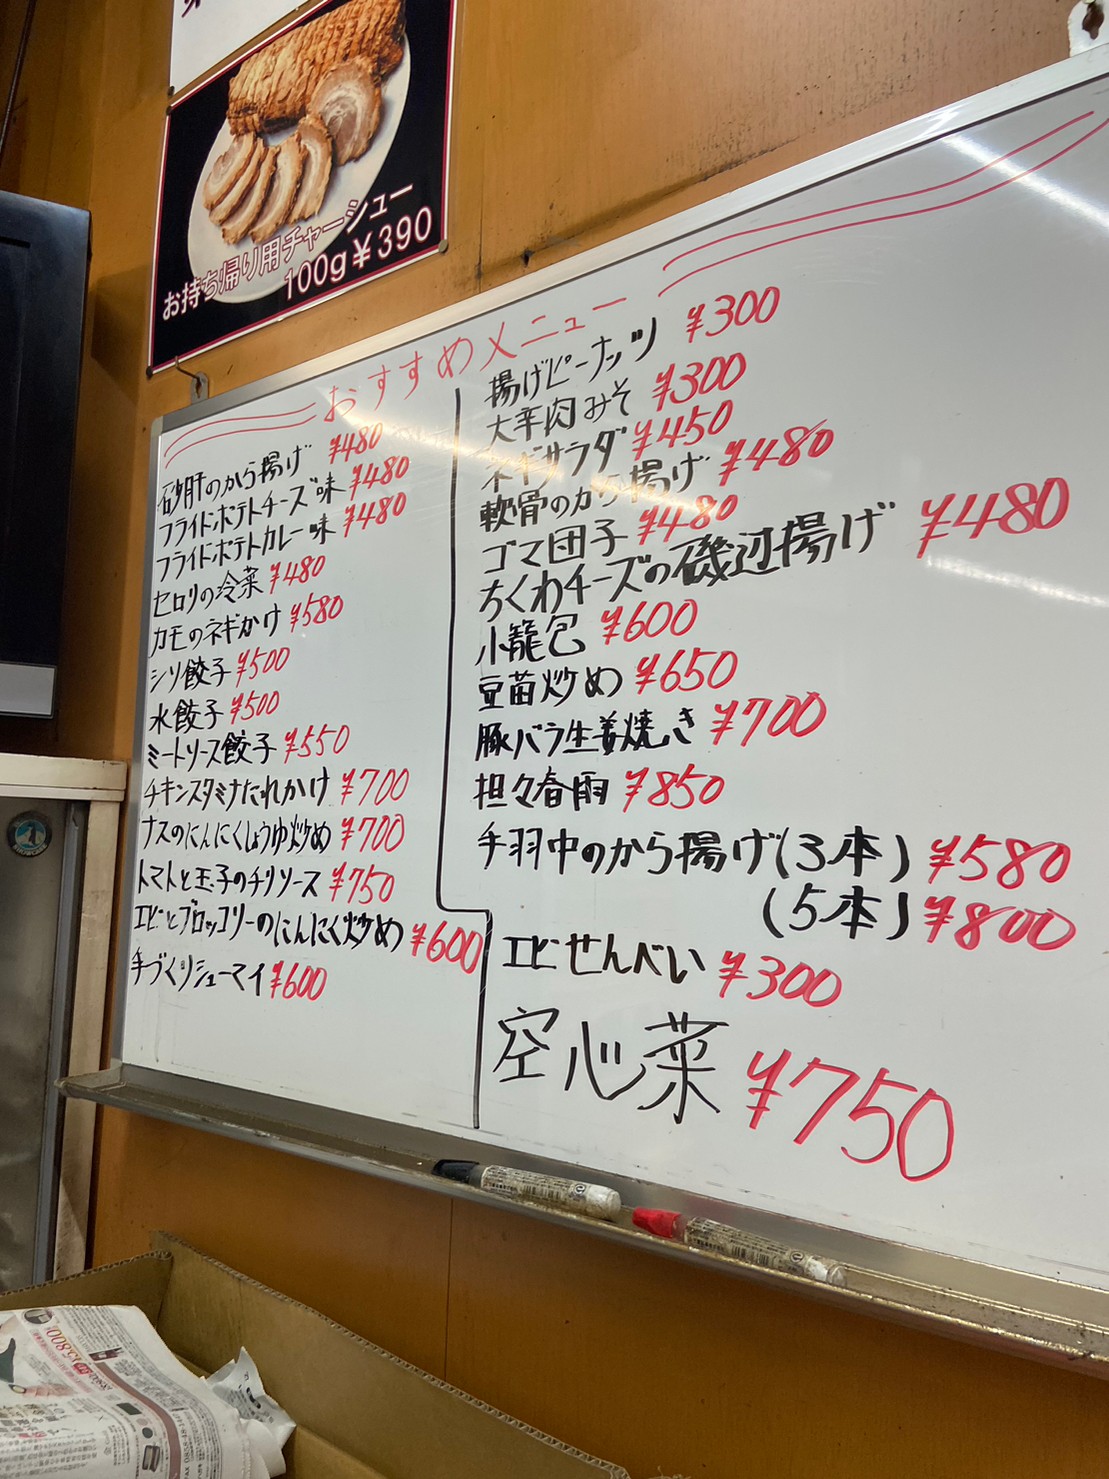 お持ち帰り用チャーシュー
100g￥390
おすすめメニュー
砂肝のから揚げ ¥480
フライドポテトチーズ味 ¥480
フライドポテトカレー味 ¥480
セロリの冷菜 ¥480
カモのネギかけ ¥580
シソ餃子 ¥500
水餃子 ¥500
ミートソース餃子 ¥550
チキンスタミナたれかけ ¥700
ナスのにんにくしょうゆ炒め ¥700
トマトと玉子のチリソース ¥750
エビとブロッコリーのにんにく炒め ¥600
手づくりシューマイ ¥600
揚げピーナッツ ¥300
大辛肉みそ ¥300
ネギサラダ ¥450
軟骨のから揚げ ¥480
ゴマ団子 ¥480
ちくわチーズの磯辺揚げ ¥480
小籠包 ¥600
豆苗炒め ¥650
豚バラ生姜焼き ¥700
担々春雨 ¥850
手羽中のから揚げ(3本) ¥580
(5本) ¥800
エビせんべい ¥300
空心菜 ¥750